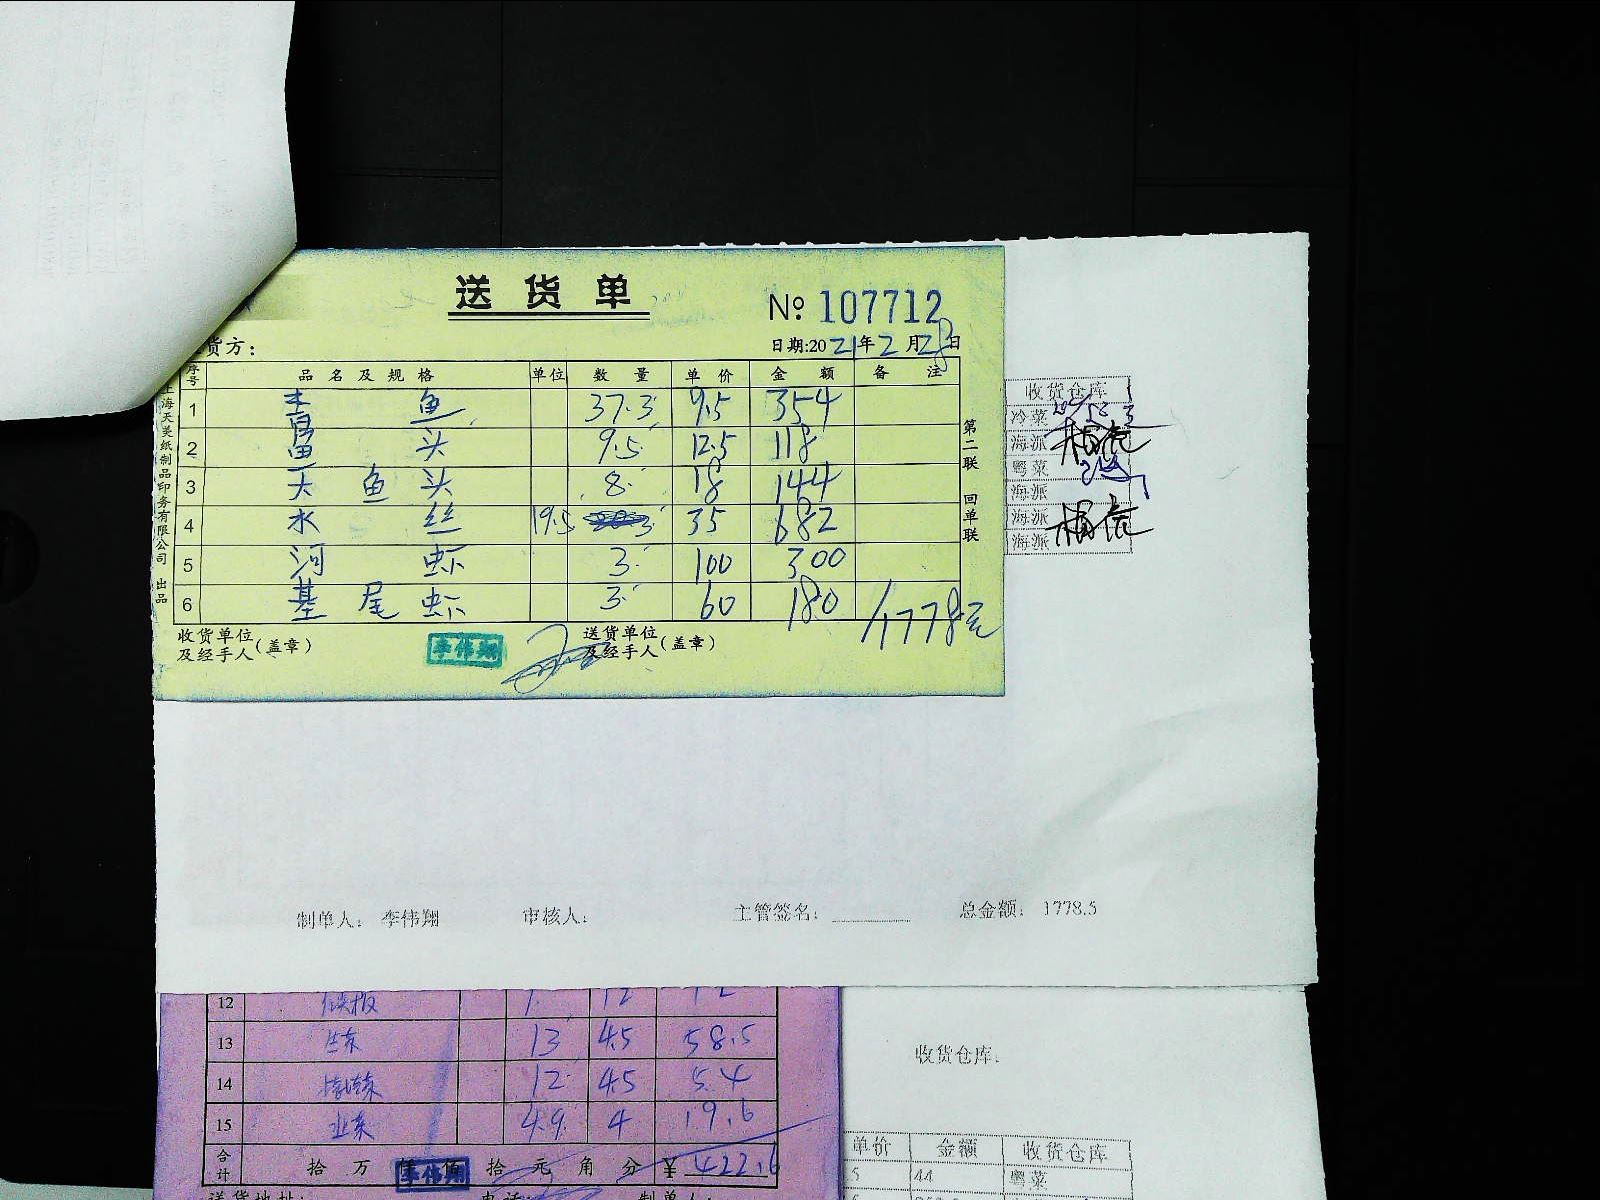 送货单
№ 107712
货方：
日期:2021年2月28日
序号 品名及规格 单位 数量 单价 金额 备注
1 鱼 37.3 9.5 354
2 头 9.5 12.5 118
3 鱼头 8 18 144
4 水 丝 19.5 35 682
5 河 虾 3 100 300
6 基尾虾 3 60 180
1778元
收货单位及经手人(盖章)
李伟翔
送货单位及经手人(盖章)
海天美纸制品印务有限公司 出品
第二联 回单联
收货仓库
冷菜
海派
粤菜
海派
海派
海派
制单人： 李伟翔 审核人： 主管签名： 总金额： 1778.5
12 12 12
13 13 4.5 58.5
14 12 4.5 54
15 4.9 4 19.6
合计 拾万仟佰拾元角分 ¥ 422.6
李伟翔
送货地址： 电话： 制单人：
收货仓库：
单价 金额 收货仓库
5 44 粤菜